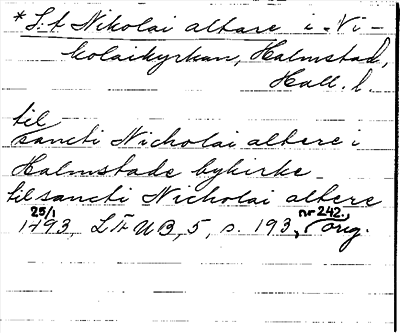 * S:t Nikolai altare i Ni-
kolaikyrkan, Halmstad,
Hall. l.
til
sancti Nicholai altere i
Halmstade bykirke
til sancti Nicholai altere
25/1 nr 242.,
1493, LÄUB, 5, s. 193, orig.